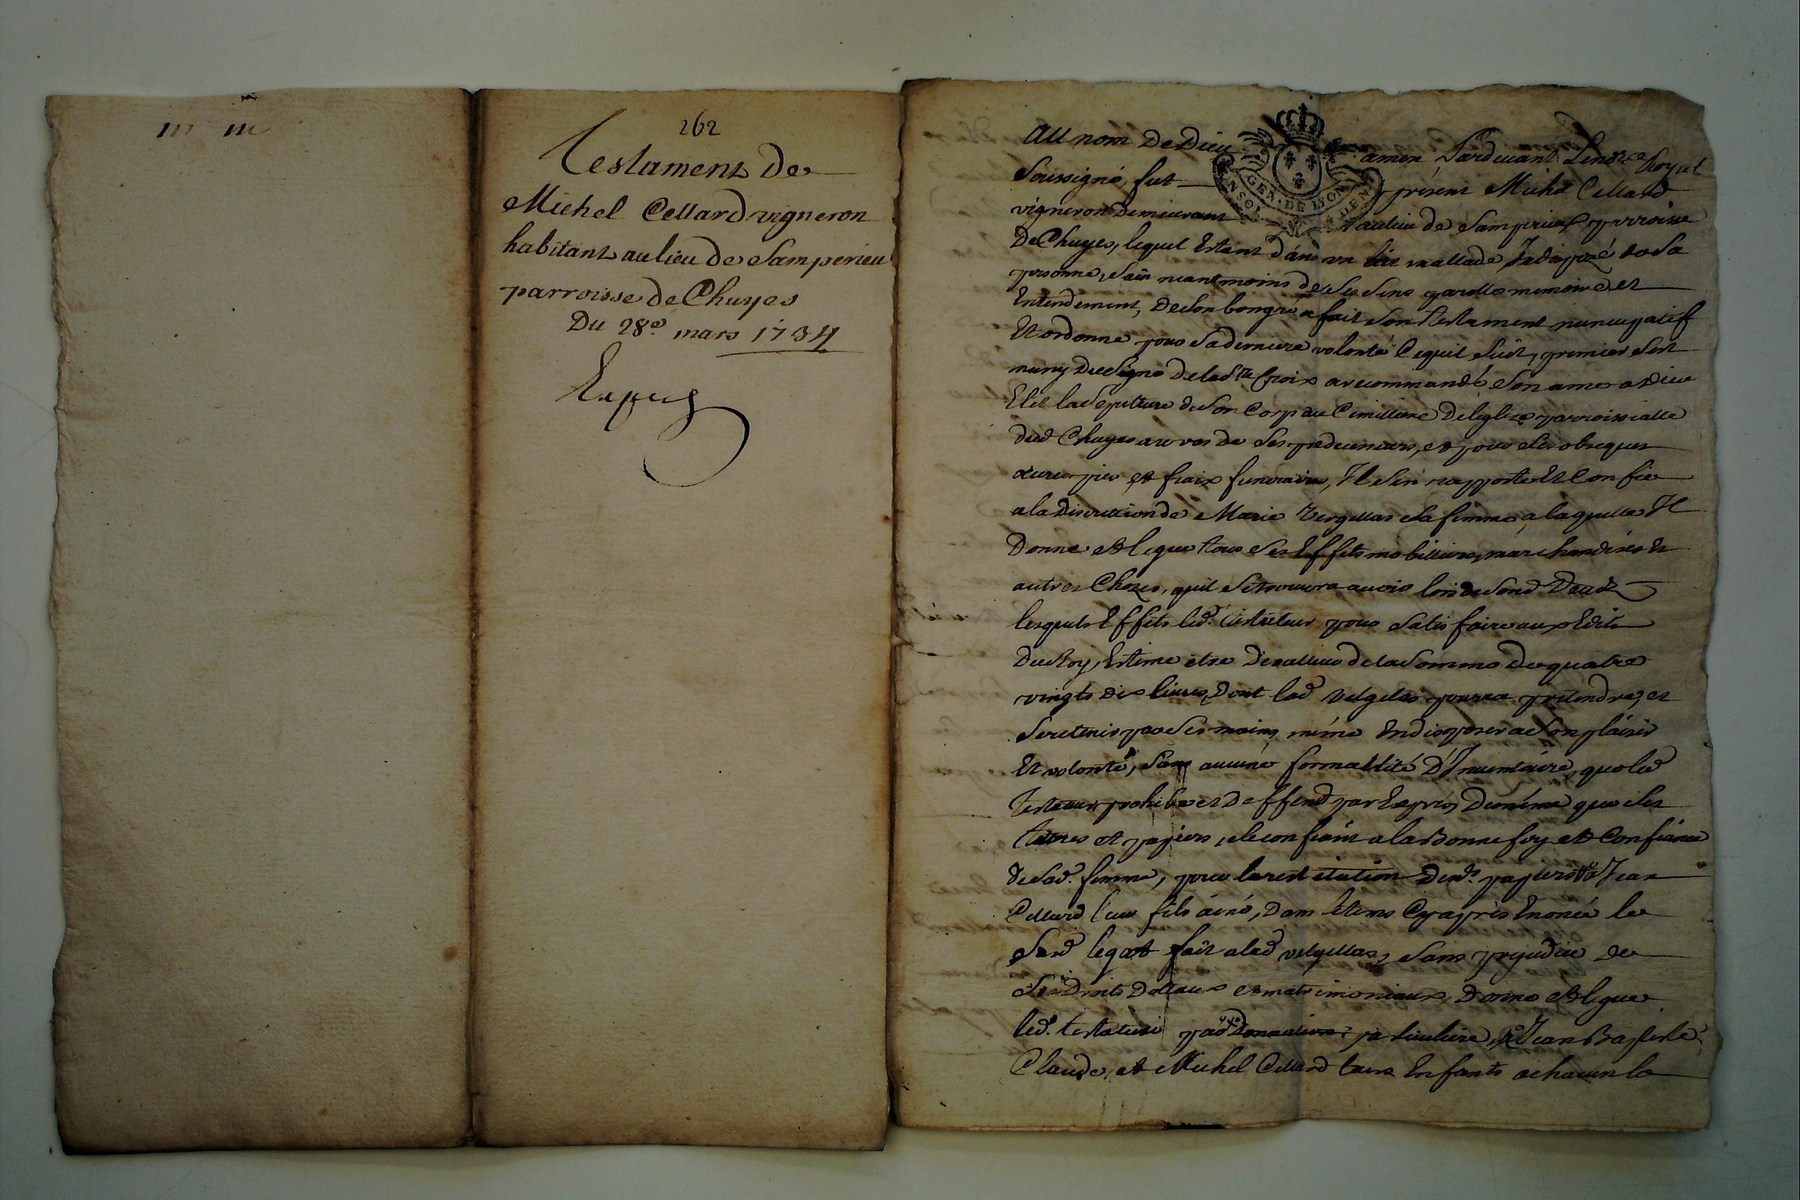 262
Testament de
Michel Cellard vigneron
habitant au lieu de Samperieu
parroisse de Chuyes
Du 28e mars 1734
GEN. DE LYON
au nom De Dieu amen Pardevant Royal
soussigné, fut présent Michel Cellard
vigneron Demeurant au lieu de Samprieux parroisse
De Chuyes, lequel Estant dans un lit mallade, Indisposé de sa
personne, sain neantmoins de ses sens parolle memoire, et
Entendement, De son bon gré a fait son testament nuncupatif
Et ordonne pour sa derniere volonté Cequil suit, premier sest
muny du signe de la Ste Croix a recommandé son ame a Dieu
Elit la sepulture de son Corp au Cimitiere De leglize parroissialle
dud Chuyes au vas de ses predecesseurs, et pour ses obseques
œuvres pies et fraix funeraires, Il s'en rapporte Et Confie
a la discrettion de Marie Vergellas sa femme, a laquelle Il
Donne et legue tous ses Effets mobilliers, marchandises Et
autres Choses, quil se trouvera avoir lors de son Deced
lesquels Effets led. testateur pour satisfaire aux Edits
Du Roy, Estime etre De valleur de la somme de quatre
vingts dix livres, Dont lad Velgelas pourra prendre, et
se retenir par ses mains, même En disposer a son plaisir
Et volonté, sans aucune formallité D'Inventaire, que led
testateur prohibe et Deffend par Exprés, De même que ses
titres et papiers, se confiant a la bonne foy et Confiance
de sad. femme, pour la restitution Desd. papiers a Jean
Cellard leur fils ainé, Dans le tems Cyapprés Enoncé le
Susd legat fait a lad velgellas, sans prejudice de
ses Droits Dottaux et matrimoniaux, Donne et legue
led. testateur par particuliere, a Jean Baptiste
Claude, et Michel Cellard leurs Enfants a chacun la